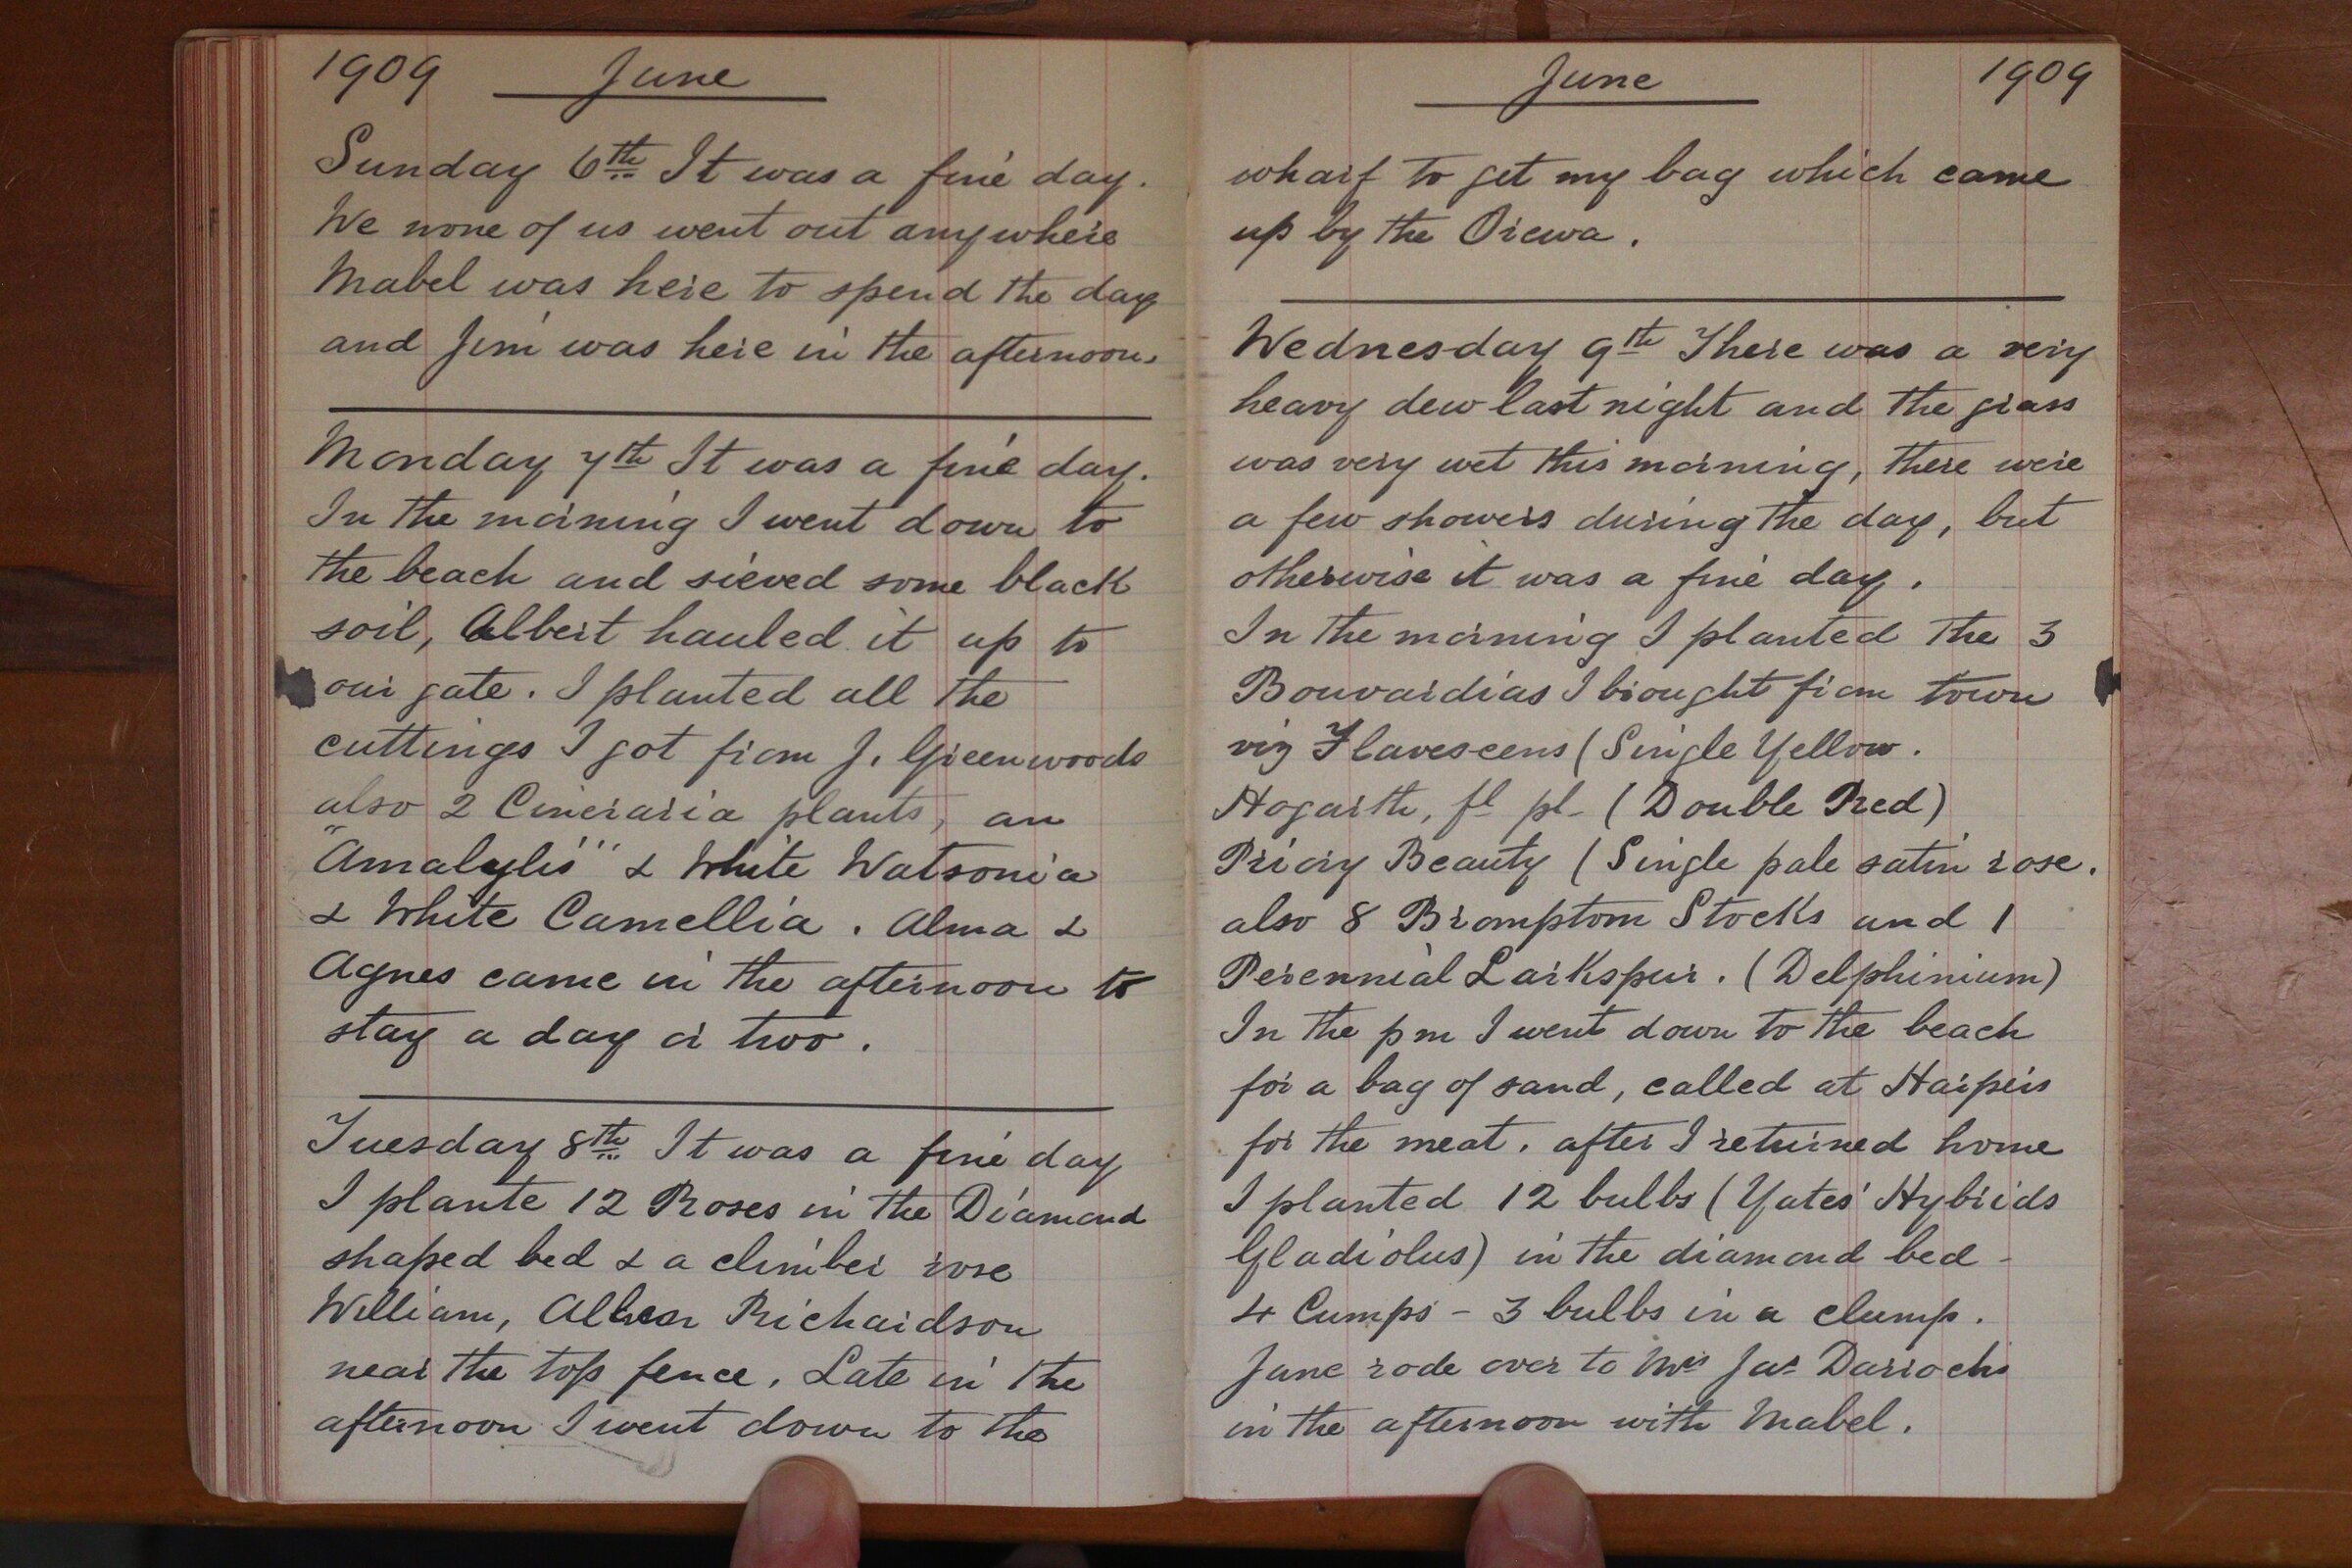 1909 June
Sunday 6th It was a fine day.
We none of us went out anywhere
Mabel was here to spend the day
and Jim was here in the afternoon.
Monday 7th It was a fine day.
In the morning I went down to
the beach and sieved some black
soil, Albert hauled it up to
our gate. I planted all the
cuttings I got from J. Greenwoods
also 2 Cineraria plants, an
"Amalylis" & White Watsonia
& White Camellia. Alma &
Agnes came in the afternoon to
stay a day or two.
Tuesday 8th It was a fine day
I plante 12 Roses in the Diamond
shaped bed & a climber rose
William, Allen Richardson
near the top fence. Late in the
afternoon I went down to the
June 1909
wharf to get my bag which came
up by the Orewa.
Wednesday 9th There was a very
heavy dew last night and the grass
was very wet this morning, there were
a few showers during the day, but
otherwise it was a fine day.
In the morning I planted the 3
Bouvardias I brought from town
viz Flavescens (Single Yellow.
Hogarth, fl pl- (Double Red)
Priory Beauty (Single pale satin rose.
also 8 Bromptom Stocks and 1
Perennial Larkspur. (Delphinium)
In the pm I went down to the beach
for a bag of sand, called at Harpers
for the meat. after I returned home
I planted 12 bulbs (Yates' Hybrids
Gladiolus) in the diamond bed -
4 Cumps - 3 bulbs in a clump.
Jane rode over to Mrs Jas Darrochs
in the afternoon with Mabel.